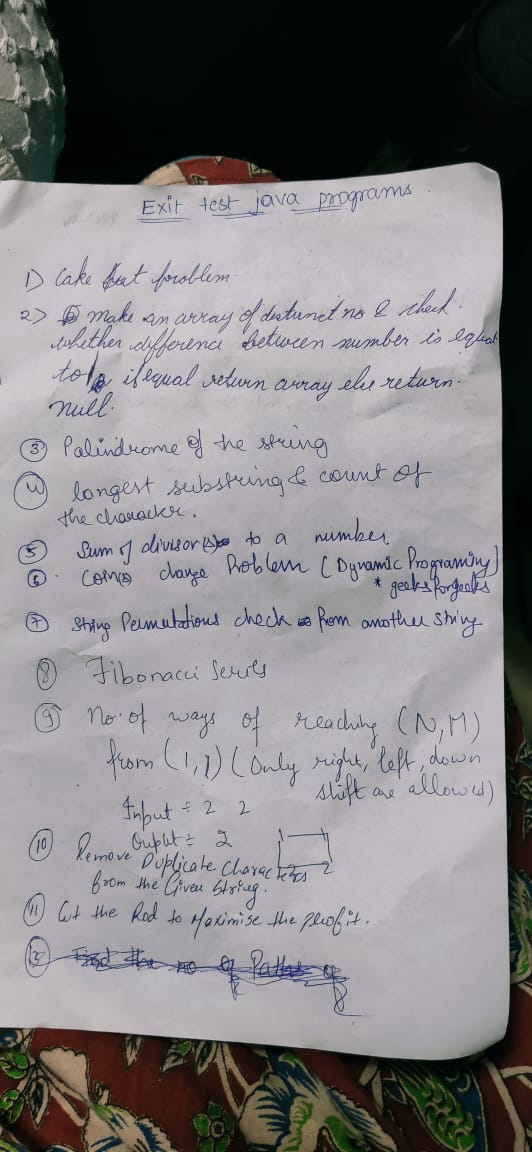 Exit test java programs
1) Cake problem.
2) make an array of distunct no & check.
whether difference between number is equal
to if equal return array else return.
null.
③ Palindrome of the string
④ longest substring & count of
the character.
⑤ Sum of divisor to a number.
⑥. Coins change Problem (Dynamic Programing)
* geeks for geeks
⑦ String Permutations check from another string
⑧ Fibonacci Series
⑨ No. of ways of reaching (N,M)
from (1,1) (Only right, left, down
shift are allowed)
Input = 2 2
Output = 2
⑩ Remove Duplicate Characters
from the Given String.
⑪ Cut the Rod to Maximise the profit.